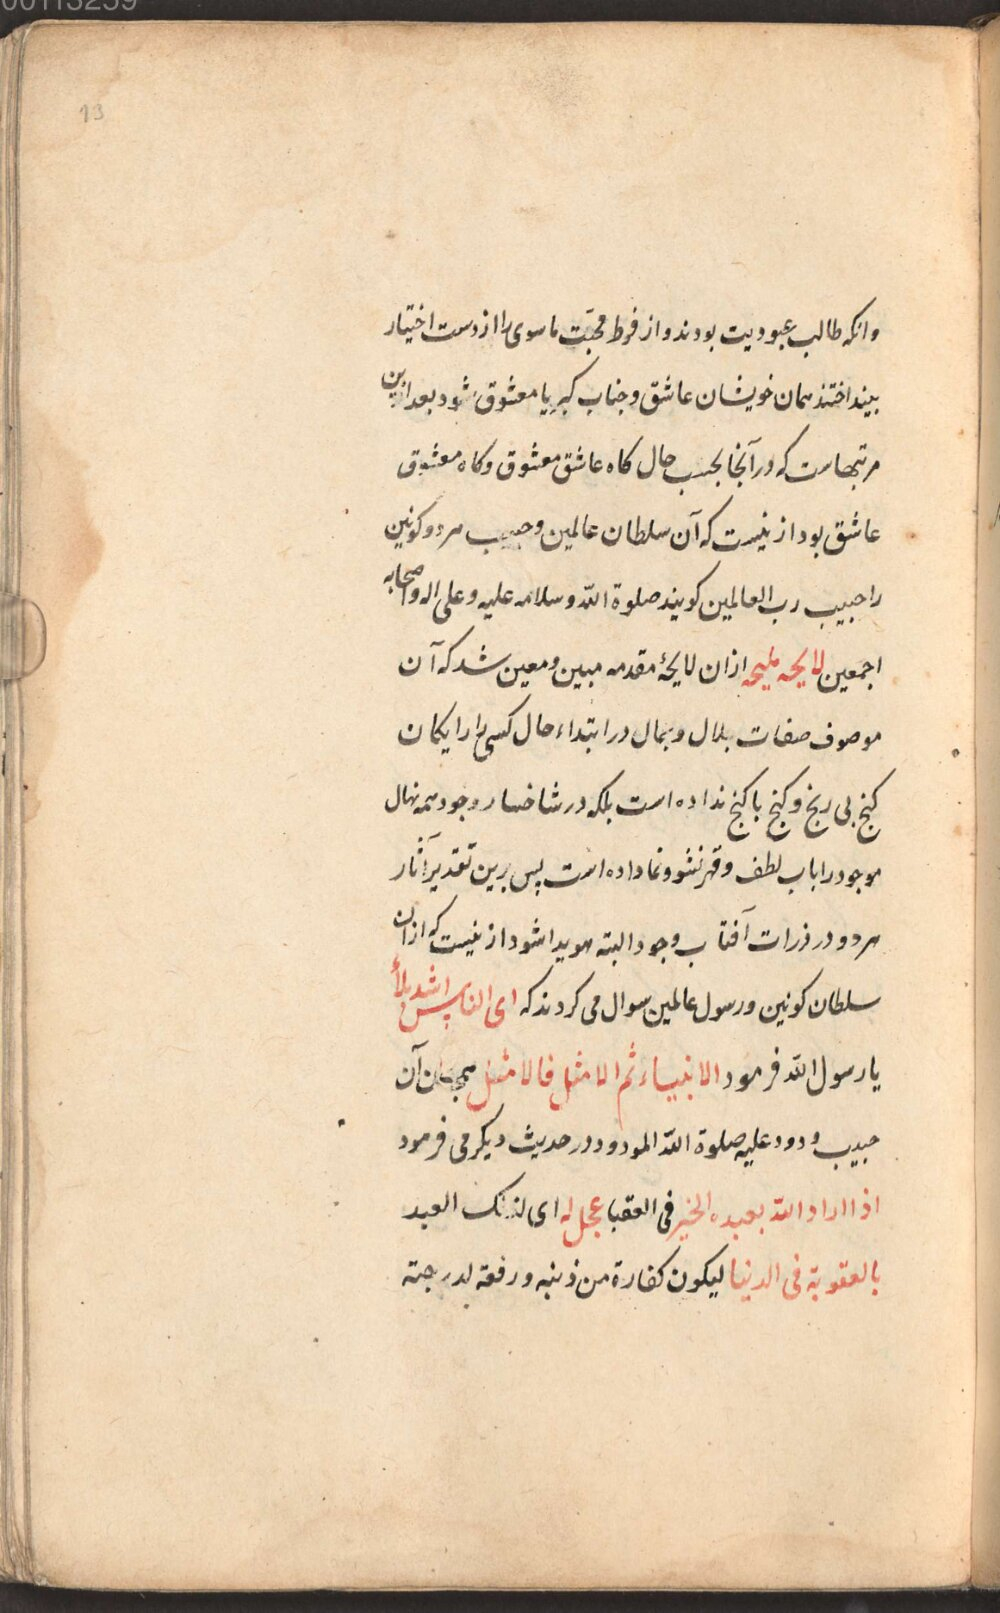 00113259
13
وانکه طالب عبودیت بودند و از فرط محبّت ماسوی را از دست اختیار
بینداختند همان خویشان عاشق و جناب کبریا معشوق شود بعد ازین
مرتبهاست که در آنجا بحسب حال کاه عاشق معشوق و کاه معشوق
عاشق بود از ینست که آن سلطان عالمین و حبیب هر دو کونین
را حبیب رب العالمین کویند صلوة اللّه وسلامه علیه وعلی اله واصحابه
اجمعین لایحه ملیحه از ان لایحهٔ مقدمه مبین و معین شد که آن
موصوف صفات جلال وجمال در ابتداء حال کسی را رایکان
کنج بی رنج و کنج با کنج نداده است بلکه در شاخسار وجود همه نهال
موجود را باب لطف و قهر نشو و نما داده است پس برین تقدیر آثار
هر دو در ذرات آفتاب وجود البته هویدا شود از ینست که از ان
سلطان کونین و رسول عالمین سوال می کردند که ای الناس اشد بلأ
یا رسول اللّه فرمود الانبیاء ثم الامثل فالامثل همچنان آن
حبیب ودود علیه صلوة اللّه المودود در حدیث دیکر می فرمود
اذا اراد اللّه بعبده الخیر فی العقبا عجل له ای لذلک العبد
بالعقوبة فی الدنیا لیکون کفارة من ذنبه و رفعة لدرجته